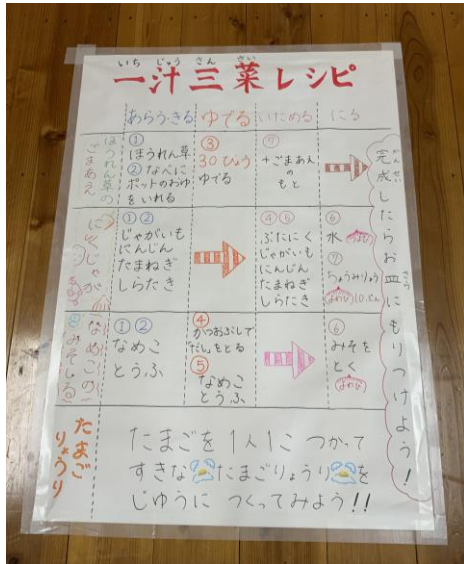 いち じゅう さん さい
一汁三菜レシピ
あらう・きる ゆでる いためる にる
ほうれん草の
ごまあえ
①
ほうれん草
②なべに
ポットのおゆ
をいれる
③
30びょう
ゆでる
⑦
+ごまあえ
の
もと
にくじゃが
①②
じゃがいも
にんじん
たまねぎ
しらたき
④⑤
ぶたにく
じゃがいも
にんじん
たまねぎ
しらたき
⑥
水
⑦
ちょうみりょう
よわび10ぷん
なめこの
みそしる
①②
なめこ
とうふ
④
かつおぶしで
だしをとる
⑤
なめこ
とうふ
⑥
みそを
とく
よわび
かんせい
さら
完成したらお皿にもりつけよう!
たまご
りょうり
たまごを1人1こ つかって
すきなたまごりょうりを
じゆうに つくってみよう!!